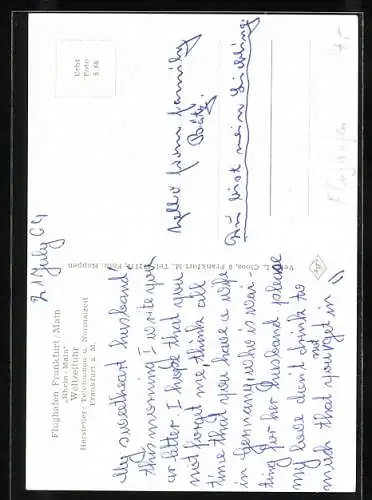 Flughafen Frankfurt/Main
„Rhein-Main"
Weltzeituhr
Hersteller: Telefonbau u. Normalzeit
Frankfurt a. M.
21 July 64
My sweetheart husband!
this morning I write you
ar letter I hope that you
not forget me, think all
time that you have a wife
in germany, who is wai-
ting for her husband please
my love don't drink to
not
much that younget in
Verl. L. Cloos, Frankfurt M. Foto: Koppen
Echt
Foto
hello from family
Du bist mein Liebling.
Flughafen